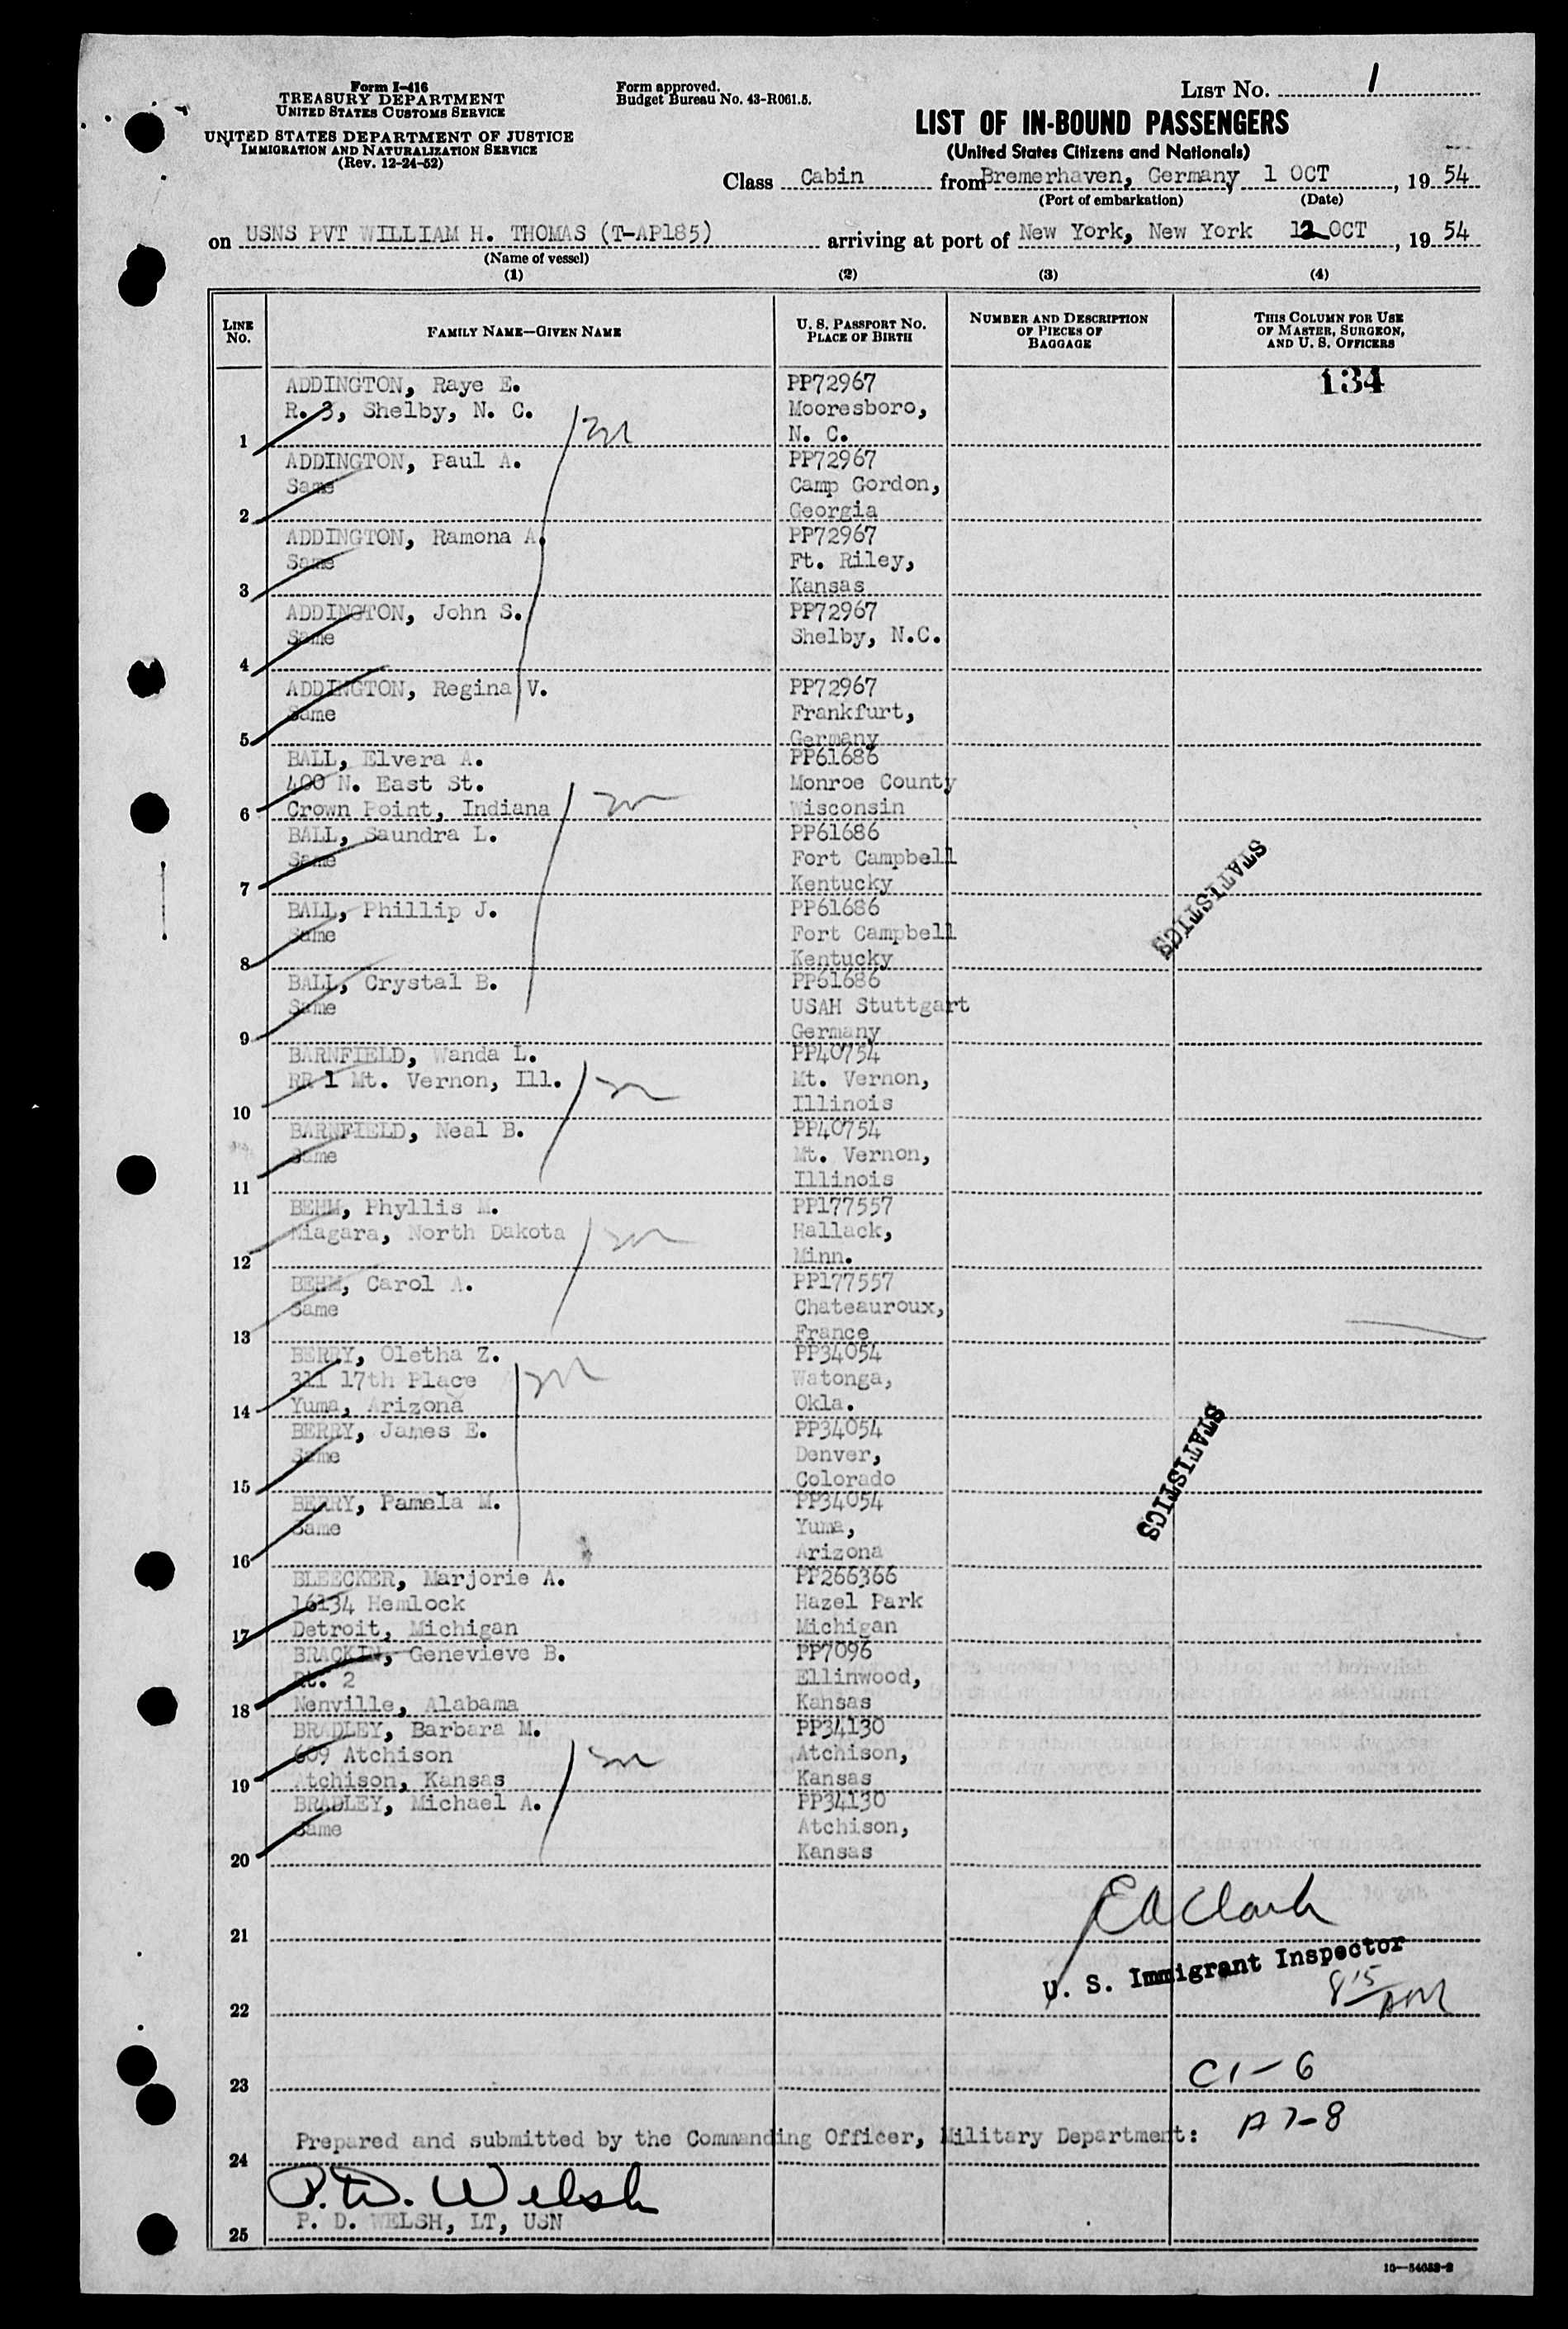 Form I-416
TREASURY DEPARTMENT
UNITED STATES CUSTOMS SERVICE
UNITED STATES DEPARTMENT OF JUSTICE
IMMIGRATION AND NATURALIZATION SERVICE
(Rev. 12-24-52)
Form approved.
Budget Bureau No. 43-R061.5.
LIST NO. 1
LIST OF IN-BOUND PASSENGERS
(United States Citizens and Nationals)
Class Cabin from Bremerhaven, Germany 1 OCT, 19 54
(Port of embarkation) (Date)
on USNS PVT WILLIAM H. THOMAS (T-AP185) arriving at port of New York, New York 12 OCT, 19 54
(Name of vessel)
(1) (2) (3) (4)
LINE NO.
FAMILY NAME—GIVEN NAME
U. S. PASSPORT NO.
PLACE OF BIRTH
NUMBER AND DESCRIPTION
OF PIECES OF
BAGGAGE
THIS COLUMN FOR USE
OF MASTER, SURGEON,
AND U. S. OFFICERS
134
ADDINGTON, Raye E. PP72967
R. 3, Shelby, N. C. Mooresboro,
1 N. C.
ADDINGTON, Paul A. PP72967
Same Camp Gordon,
2 Georgia
ADDINGTON, Ramona A. PP72967
Same Ft. Riley,
3 Kansas
ADDINGTON, John S. PP72967
Same Shelby, N.C.
4
ADDINGTON, Regina V. PP72967
Same Frankfurt,
5 Germany
BALL, Elvera A. PP61686
400 N. East St. Monroe County
6 Crown Point, Indiana Wisconsin
BALL, Saundra L. PP61686
Same Fort Campbell
7 Kentucky
BALL, Phillip J. PP61686
Same Fort Campbell
8 Kentucky
BALL, Crystal B. PP61686
Same USAH Stuttgart
9 Germany
BARNFIELD, Wanda L. PP40754
RR 1 Mt. Vernon, Ill. Mt. Vernon,
10 Illinois
BARNFIELD, Neal B. PP40754
Same Mt. Vernon,
11 Illinois
BEHM, Phyllis M. PP177557
Niagara, North Dakota Hallack,
12 Minn.
BEHM, Carol A. PP177557
Same Chateauroux,
13 France
BERRY, Oletha Z. PP34054
311 17th Place Watonga,
14 Yuma, Arizona Okla.
BERRY, James E. PP34054
Same Denver,
15 Colorado
BERRY, Pamela M. PP34054
Same Yuma,
16 Arizona
BLEECKER, Marjorie A. PP266366
16134 Hemlock Hazel Park
17 Detroit, Michigan Michigan
BRACKIN, Genevieve B. PP7096
Rt. 2 Ellinwood,
18 Nenville, Alabama Kansas
BRADLEY, Barbara M. PP34130
609 Atchison Atchison,
19 Atchison, Kansas Kansas
BRADLEY, Michael A. PP34130
Same Atchison,
20 Kansas
STATISTICS
STATISTICS
EA Clark
21
U. S. Immigrant Inspector
8 15 AM
22
C1-6
23
A7-8
Prepared and submitted by the Commanding Officer, Military Department:
24
P.D. Welsh
P. D. WELSH, LT, USN
25